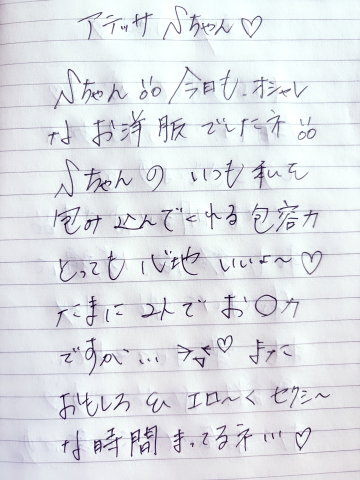 アテッサ Sちゃん♡
Sちゃん 今日も、オシャレ
な お洋服 でしたネ
Sちゃんの いつも 私を
包み込んでくれる 包容力
とっても 心地 いいよ〜♡
たまに 2人で お〇カ
ですが… ♡ また
おもしろ & エロ〜く セクシ〜
な時間 まってるネ…♡